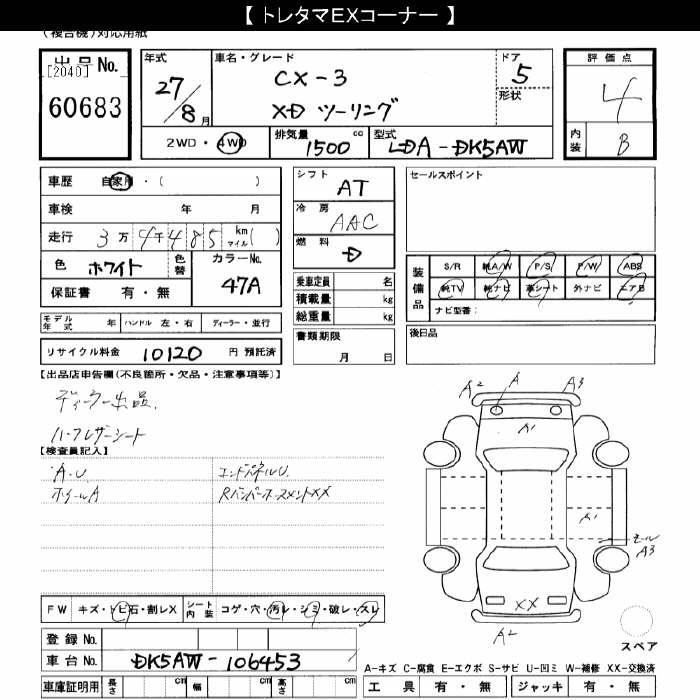 【 トレタマEXコーナー 】
(複合機)対応用紙
出品 No.
[2040]
60683
年式 27/8月
車名・グレード CX-3
XD ツーリング
ドア 5
形状
評価点 4
内装 B
2WD・4WD
排気量 1500 cc
型式 LDA-DK5AW
車歴 自家用・( )
車検 年 月
走行 3万4千485 km マイル( )
色 ホワイト 色替 カラーNo. 47A
保証書 有・無
シフト AT
冷房 AAC
燃料 D
乗車定員 名
積載量 kg
総重量 kg
セールスポイント
装備品 S/R 純A/W P/S P/W ABS
純TV 純ナビ 革シート 外ナビ エアB
ナビ型番:
モデル年式 年 ハンドル 左・右 ディーラー・並行
書類期限 月 日
後日品
リサイクル料金 10120 円 預託済
【出品店申告欄(不良箇所・欠品・注意事項等)】
ディーラー出品.
ハーフレザーシート
【検査員記入】
A.U エンドパネルU.
ホイールA
A2 A A3
A1
A1
モール A3
XX
A2
FW キズ・トビ石・割レX シート内装 コゲ・穴・汚レ・シミ・破レ・スレ
登録 No.
車台 No. DK5AW-106453
車庫証明用 長さ cm 幅 cm 高さ cm
スペア
A-キズ C-腐食 E-エクボ S-サビ U-凹ミ W-補修 XX-交換済
工具 有・無 ジャッキ 有・無